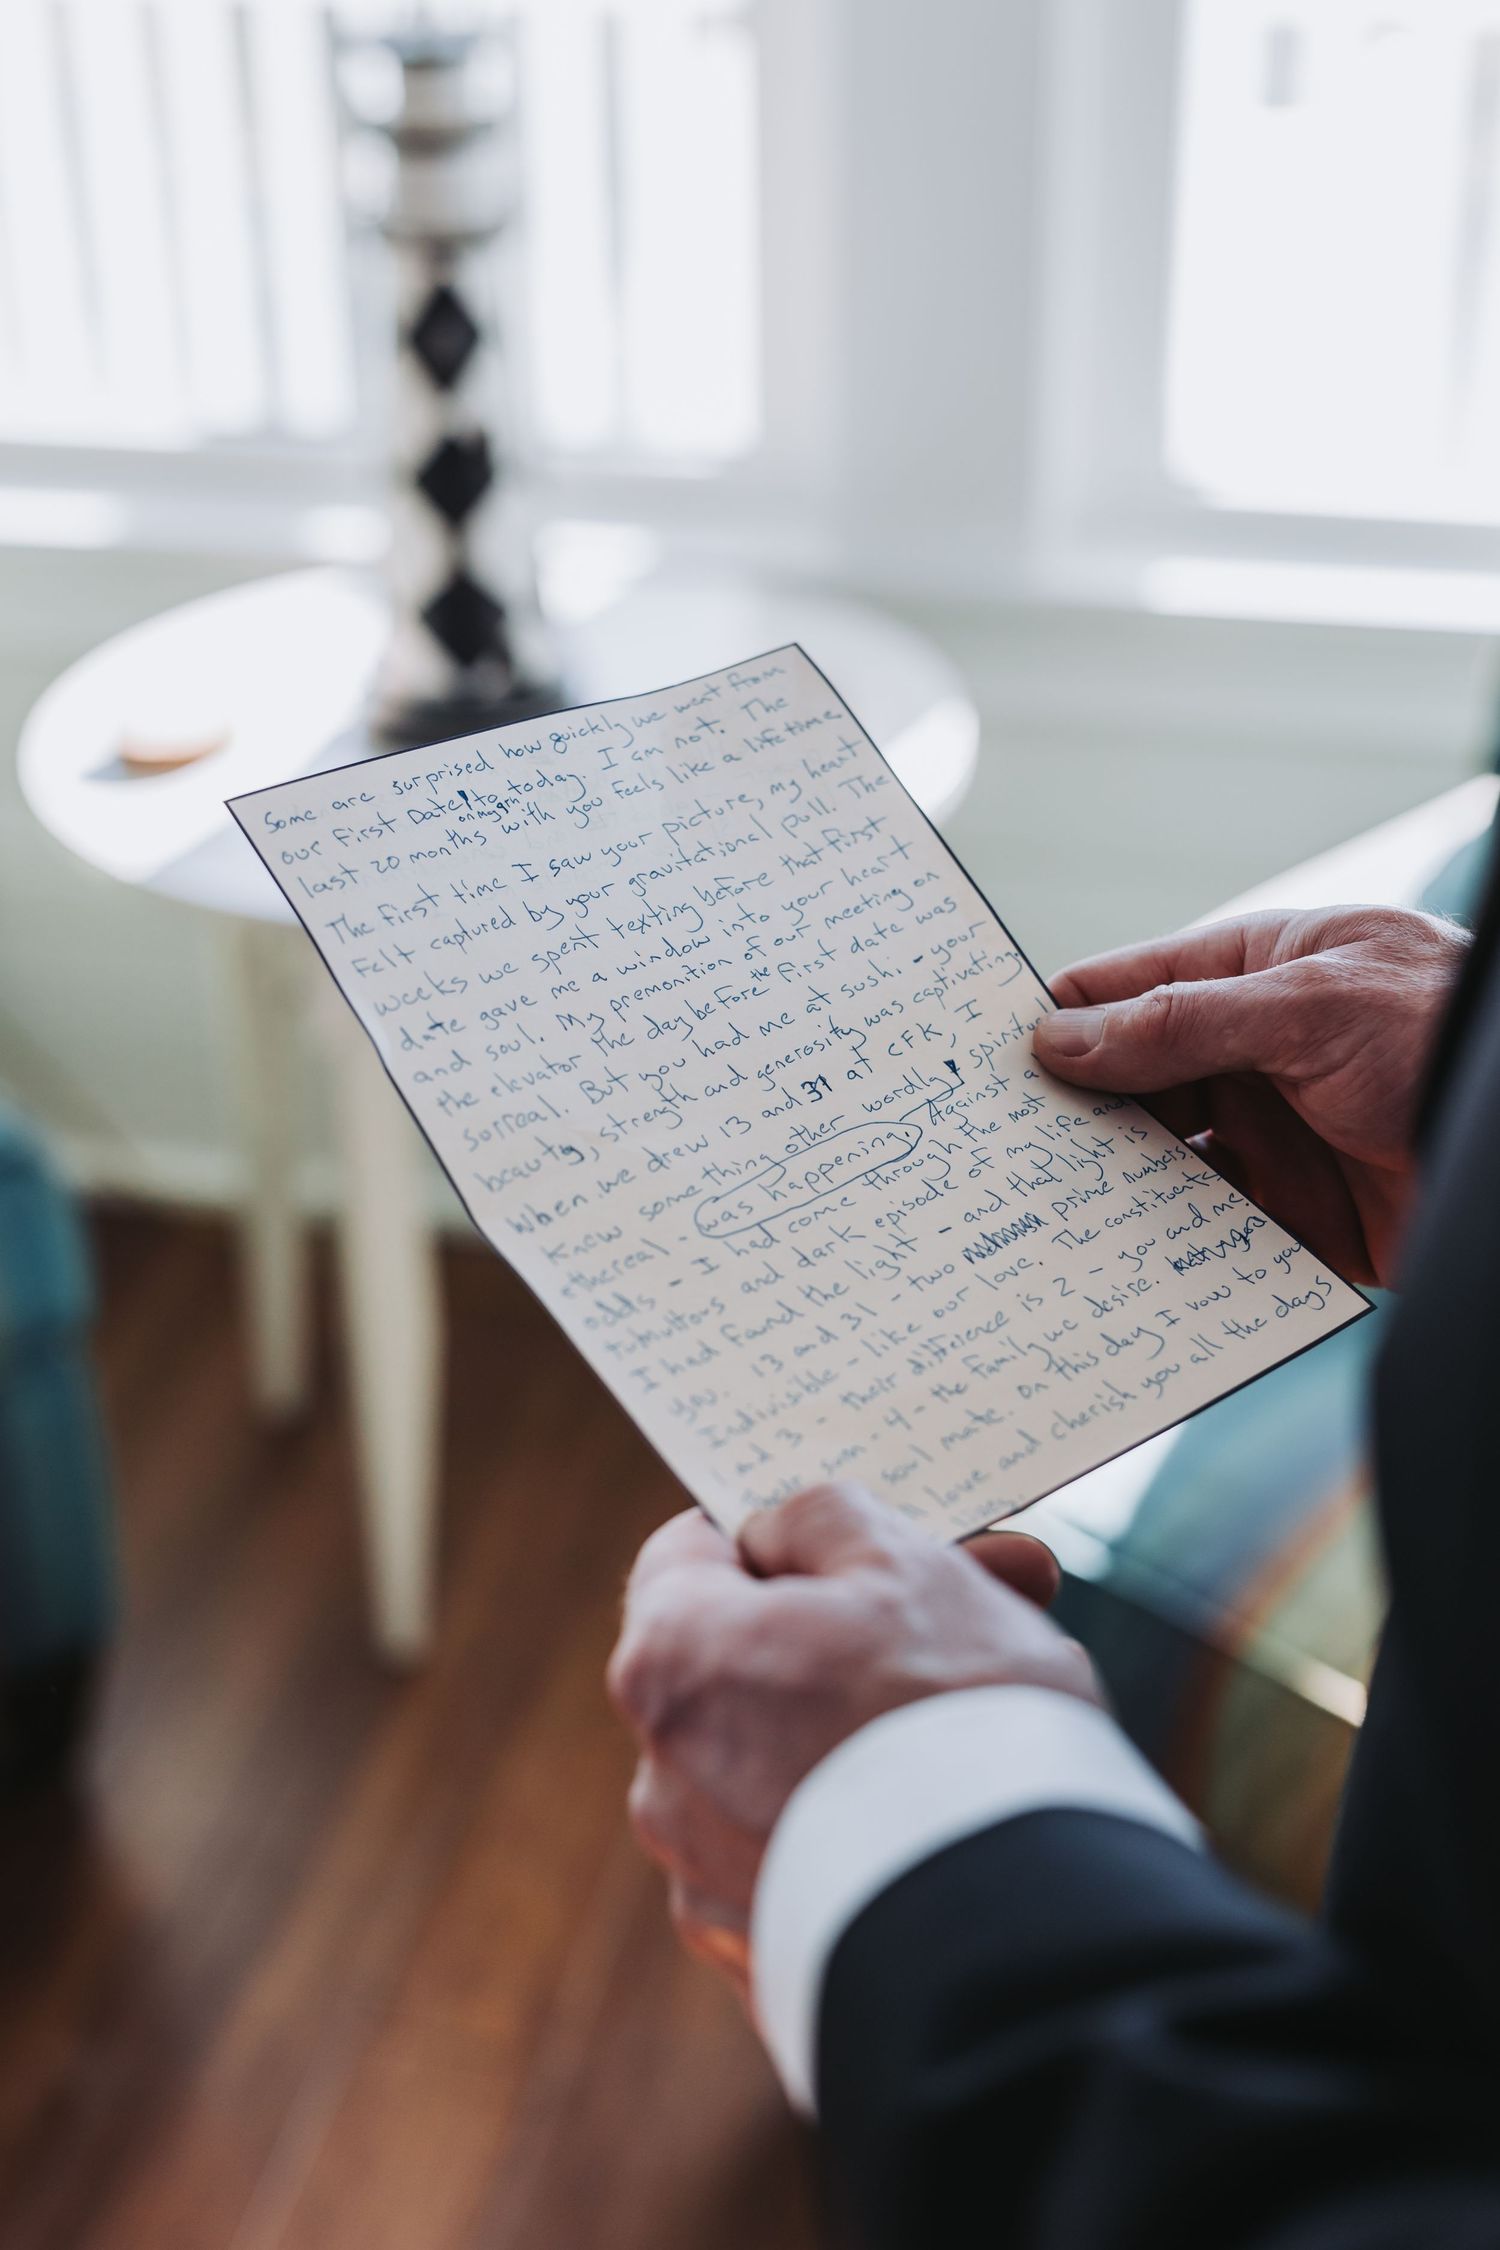 Some are surprised how quickly we went from
our First Date to today. I am not. The
on my 9th
last 20 months with you feels like a lifetime.
The first time I saw your picture, my heart
Felt captured by your gravitational pull. The
weeks we spent texting before that first
date gave me a window into your heart
and soul. My premonition of our meeting on
the elevator the day before the first date was
surreal. But you had me at sushi - your
beauty, strength and generosity was captivating.
When we drew 13 and 31 at CFK, I
knew something other wordly, spiritual
ethereal - was happening. Against a
odds - I had come through the most
tumultous and dark episode of my life and
I had found the light - and that light is
you. 13 and 31 - two prime numbers.
Indivisible - like our love. The constituents
1 and 3 - their difference is 2 - you and me.
Their sum - 4 - the family we desire.
soul mate. On this day I vow to you
love and cherish you all the days
lives.